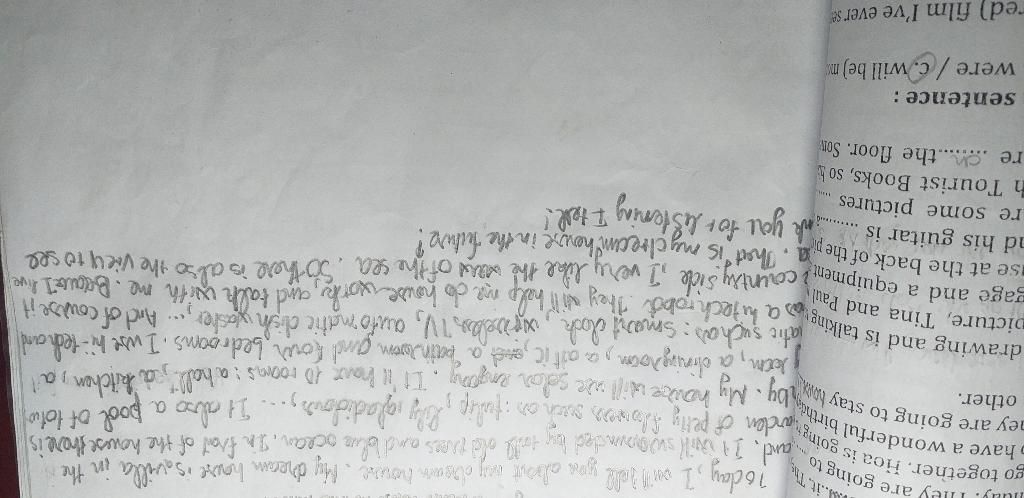 Today, I will tell you about my dream house. My dream house is villa in the
and. It will surrounded by tall old trees and blue ocean. In front of the house there is
garden of pretty flowers such as: tulip, lily, gladiolous, ... It also a pool of lotus
by. My house will use solar engang. It'll have 10 rooms: a hall, a kitchen, a
room, a diningroom, a attic, a bathroom and four bedrooms. I use hi-tech and
matic suchas: smart clock, wireless TV, automatic dish washer, ... And of course it
has a hitech robot. They will help me do house works and talk with me. Because I live
country side, I very like the view of the sea. So there is also the view to see
a. That is my dream house in the future?
ank you for listening I tell!
day. They are going to
go together. Hoa is going
o have a wonderful birthday
hey are going to stay
other.
drawing and is talking
picture, Tina and Paul
gage and a equipment
use at the back of the pic
nd his guitar is
re some pictures
h Tourist Books, so
re ...on...the floor.
sentence :
were / c. will be)
red) film I've ever